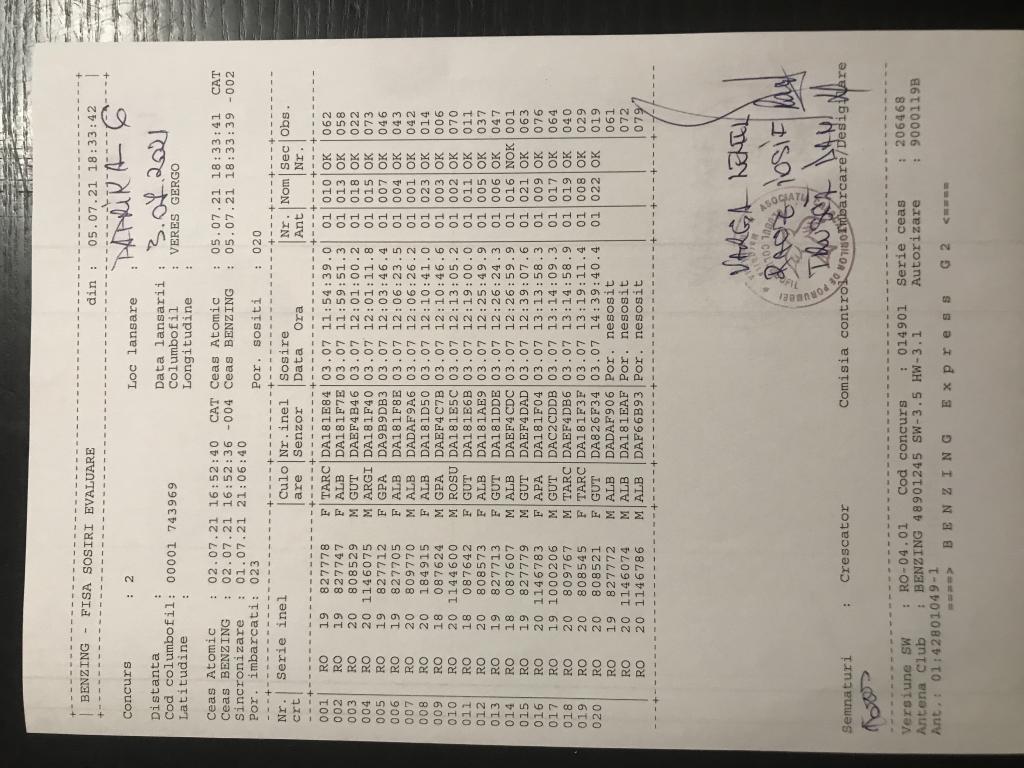 BENZING - FISA SOSIRI EVALUARE din : 05.07.21 18:33:42
Concurs : 2 Loc lansare : 
Distanta : Data lansarii : 3.07.2021
Cod columbofil: 00001 743969 Columbofil : VERES GERGO
Latitudine : Longitudine :
Ceas Atomic : 02.07.21 16:52:40 CAT Ceas Atomic : 05.07.21 18:33:41 CAT
Ceas BENZING : 02.07.21 16:52:36 -004 Ceas BENZING : 05.07.21 18:33:39 -002
Sincronizare : 01.07.21 21:06:40
Por. imbarcati: 023 Por. sositi : 020
Nr. Serie inel Culo Nr.inel Sosire Nr. Nom Sec Obs.
crt are Senzor Data Ora Ant Nr.
001 RO 19 827778 F TARC DA181E84 03.07 11:54:39.0 01 010 OK 062
002 RO 19 827747 F ALB DA181F7E 03.07 11:59:51.3 01 013 OK 058
003 RO 20 808529 M GUT DAEF4B46 03.07 12:01:00.2 01 018 OK 022
004 RO 20 1146075 M ARGI DA181F40 03.07 12:01:11.8 01 015 OK 073
005 RO 19 827712 F GPA DA9B9DB3 03.07 12:03:46.4 01 007 OK 046
006 RO 19 827705 F ALB DA181F8E 03.07 12:06:23.5 01 004 OK 043
007 RO 20 809770 M ALB DADAF9A6 03.07 12:06:26.2 01 001 OK 042
008 RO 20 184915 F ALB DA181D50 03.07 12:10:41.0 01 023 OK 014
009 RO 18 087624 M GPA DAEF4C7B 03.07 12:10:46.6 01 003 OK 006
010 RO 20 1144600 M ROSU DA181E5C 03.07 12:13:05.2 01 002 OK 070
011 RO 18 087642 F GUT DA181E6B 03.07 12:19:00.0 01 011 OK 011
012 RO 20 808573 F ALB DA181AE9 03.07 12:25:49.9 01 005 OK 037
013 RO 19 827713 F GUT DA181DDE 03.07 12:26:24.3 01 006 OK 047
014 RO 18 087607 M ALB DAEF4CDC 03.07 12:26:59.9 01 016 NOK 001
015 RO 19 827779 M GUT DAEF4DAD 03.07 12:39:07.6 01 021 OK 063
016 RO 20 1146783 F APA DA181F04 03.07 13:13:58.3 01 009 OK 076
017 RO 19 1000206 M GUT DAC2CDDB 03.07 13:14:09.3 01 017 OK 064
018 RO 20 809767 M TARC DAEF4DB6 03.07 13:14:58.9 01 019 OK 040
019 RO 20 808545 F TARC DA181F3F 03.07 13:19:11.4 01 008 OK 029
020 RO 20 808521 F GUT DA826F34 03.07 14:39:40.4 01 022 OK 019
RO 19 827772 M ALB DADAF906 Por. nesosit 061
RO 20 1146074 M ALB DA181EAF Por. nesosit 072
RO 20 1146786 M ALB DAF66B93 Por. nesosit 079
VARGA
IOSIF
DAN
Semnaturi : Crescator Comisia control Imbarcare/Desigilare
Versiune SW : RO-04.01 Cod concurs : 014901 Serie ceas : 206468
Antena Club : BENZING 48901245 SW-3.5 HW-3.1 Autorizare : 9000119B
Ant.: 01:42801049-1
====> BENZING Express G2 <====